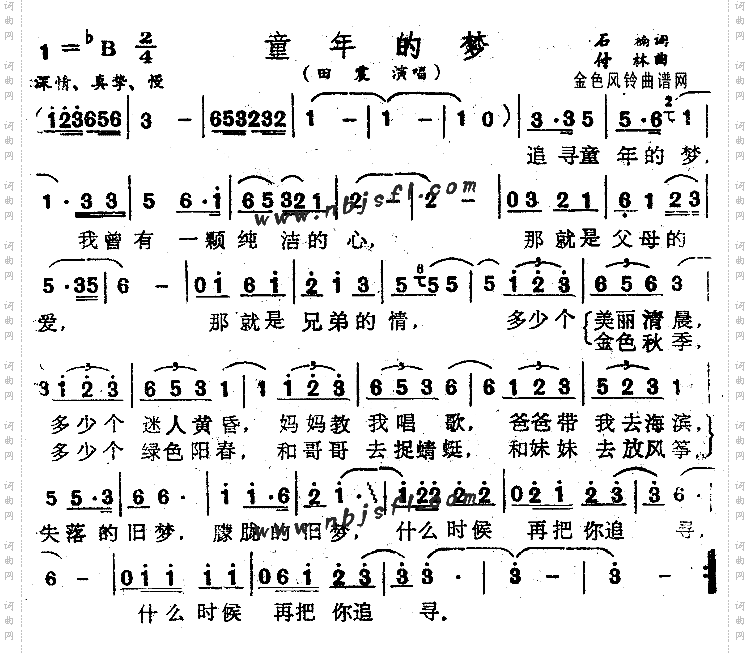 1=♭B 2/4 童年的梦 石榆词
付林曲
深情、真挚、慢 (田震 演唱) 金色风铃曲谱网
(123656 3 - 653232 1 - 1 - 1 0) 3·35 5·6 1
追寻童年的梦,
1·33 5 6·1 65321 2 - 2 - 03 21 61 23
www.nbjsfl.com
我曾有一颗纯洁的心, 那就是父母的
5·35 6 - 01 61 2 13 5 55 5 123 656 3
爱, 那就是兄弟的情, 多少个{美丽清晨,
金色秋季,
3 123 653 1 1 123 653 6 6 123 523 1
多少个迷人黄昏, 妈妈教我唱歌, 爸爸带我去海滨,
多少个绿色阳春, 和哥哥去捉蜻蜓, 和妹妹去放风筝,}
5 5·3 6 6· 1 1·6 2 1· 122 2·2 02 11 3 23 6·
www.nbjsfl.com
失落的旧梦, 朦胧的旧梦, 什么时候再把你追寻,
6 - 01 1 1 1 06 1 2 3 3 3· 3 - 3 -
什么时候再把你追寻.
词曲网